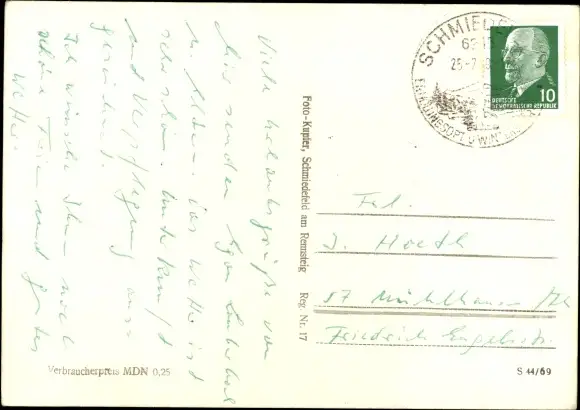 Viele Urlaubsgrüße von
hier senden Egon
u. Das Wetter ist
schön. Unterkunft
und Verpflegung
Ich wünsche Ihnen noch
schöne Ferien und gutes
Wetter
Foto-Kupfer, Schmiedefeld am Rennsteig Reg. Nr. 17
SCHMIEDEF
ERHOLUNGSORT U WINT
DEUTSCHE
DEMOKRATISCHE REPUBLIK
10
Frl.
J. Hoeth
57 Mühlhausen/Th
Friedrich Engelsstr.
Verbraucherpreis MDN 0,25
S 44/69